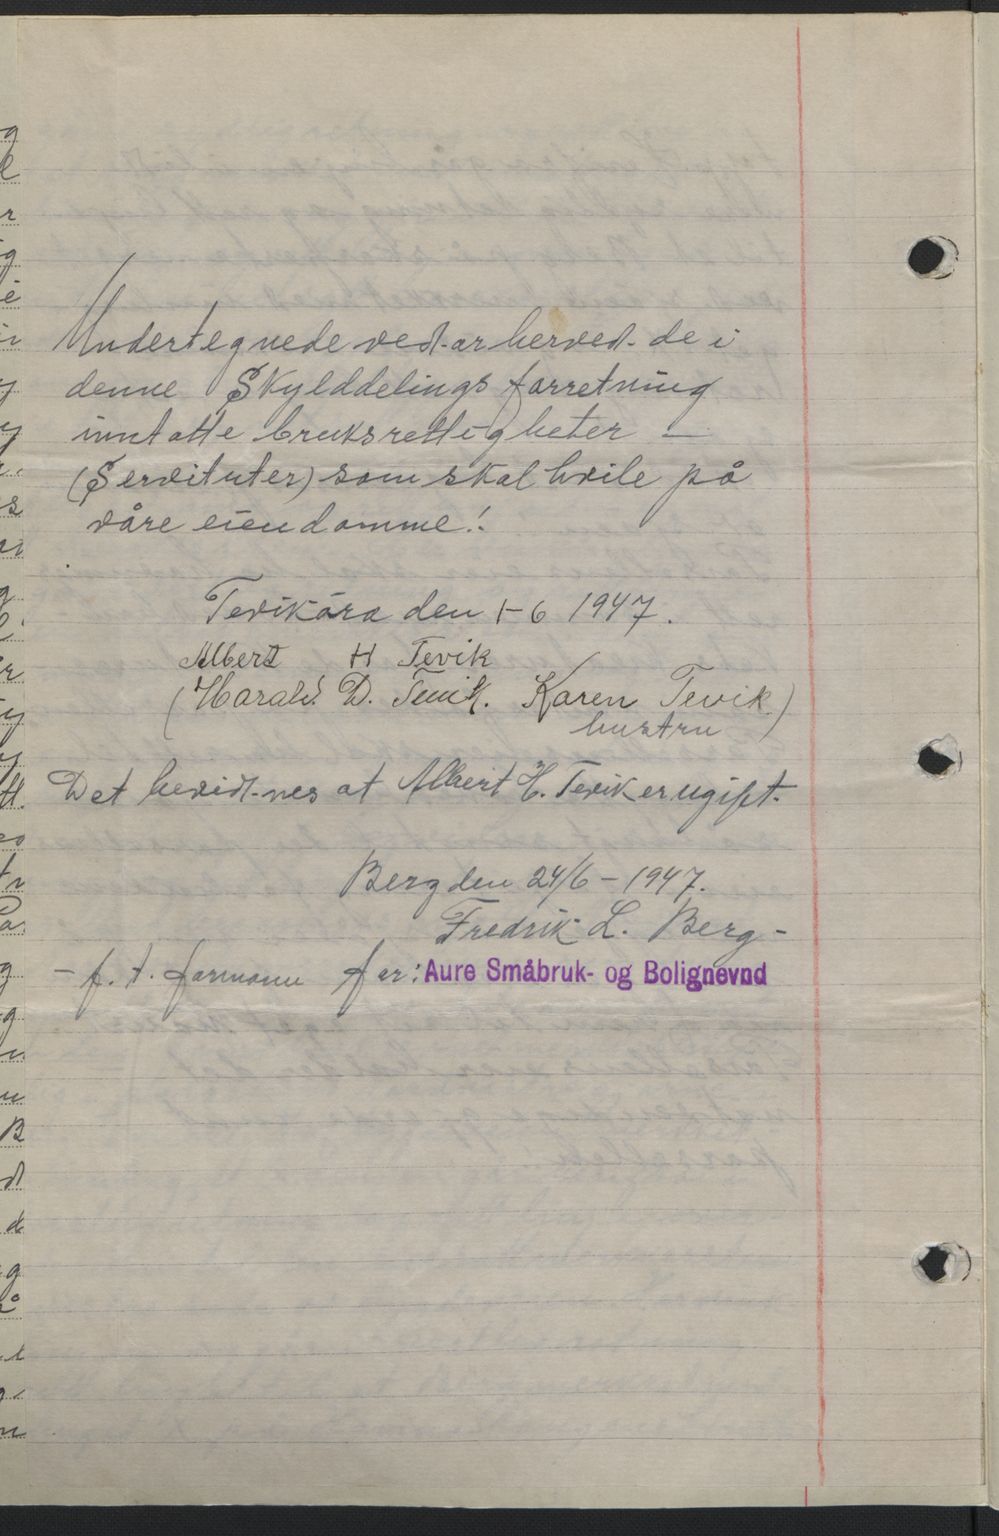 Undertegnede ved-ar herved de i
denne Skylddelings forretning
inntatte bruksrettigheter —
(Servituter) som skal hvile på
våre eiendomme!
Tevikåra den 1-6 1947.
Albert H Tevik
(Harald D. Tevik. Karen Tevik)
hustru
Det bevidnes at Albert H. Tevik er ugift.
Berg den 24/6 - 1947.
Fredrik L. Berg -
- f. t. formann for: Aure Småbruk- og Bolignevnd